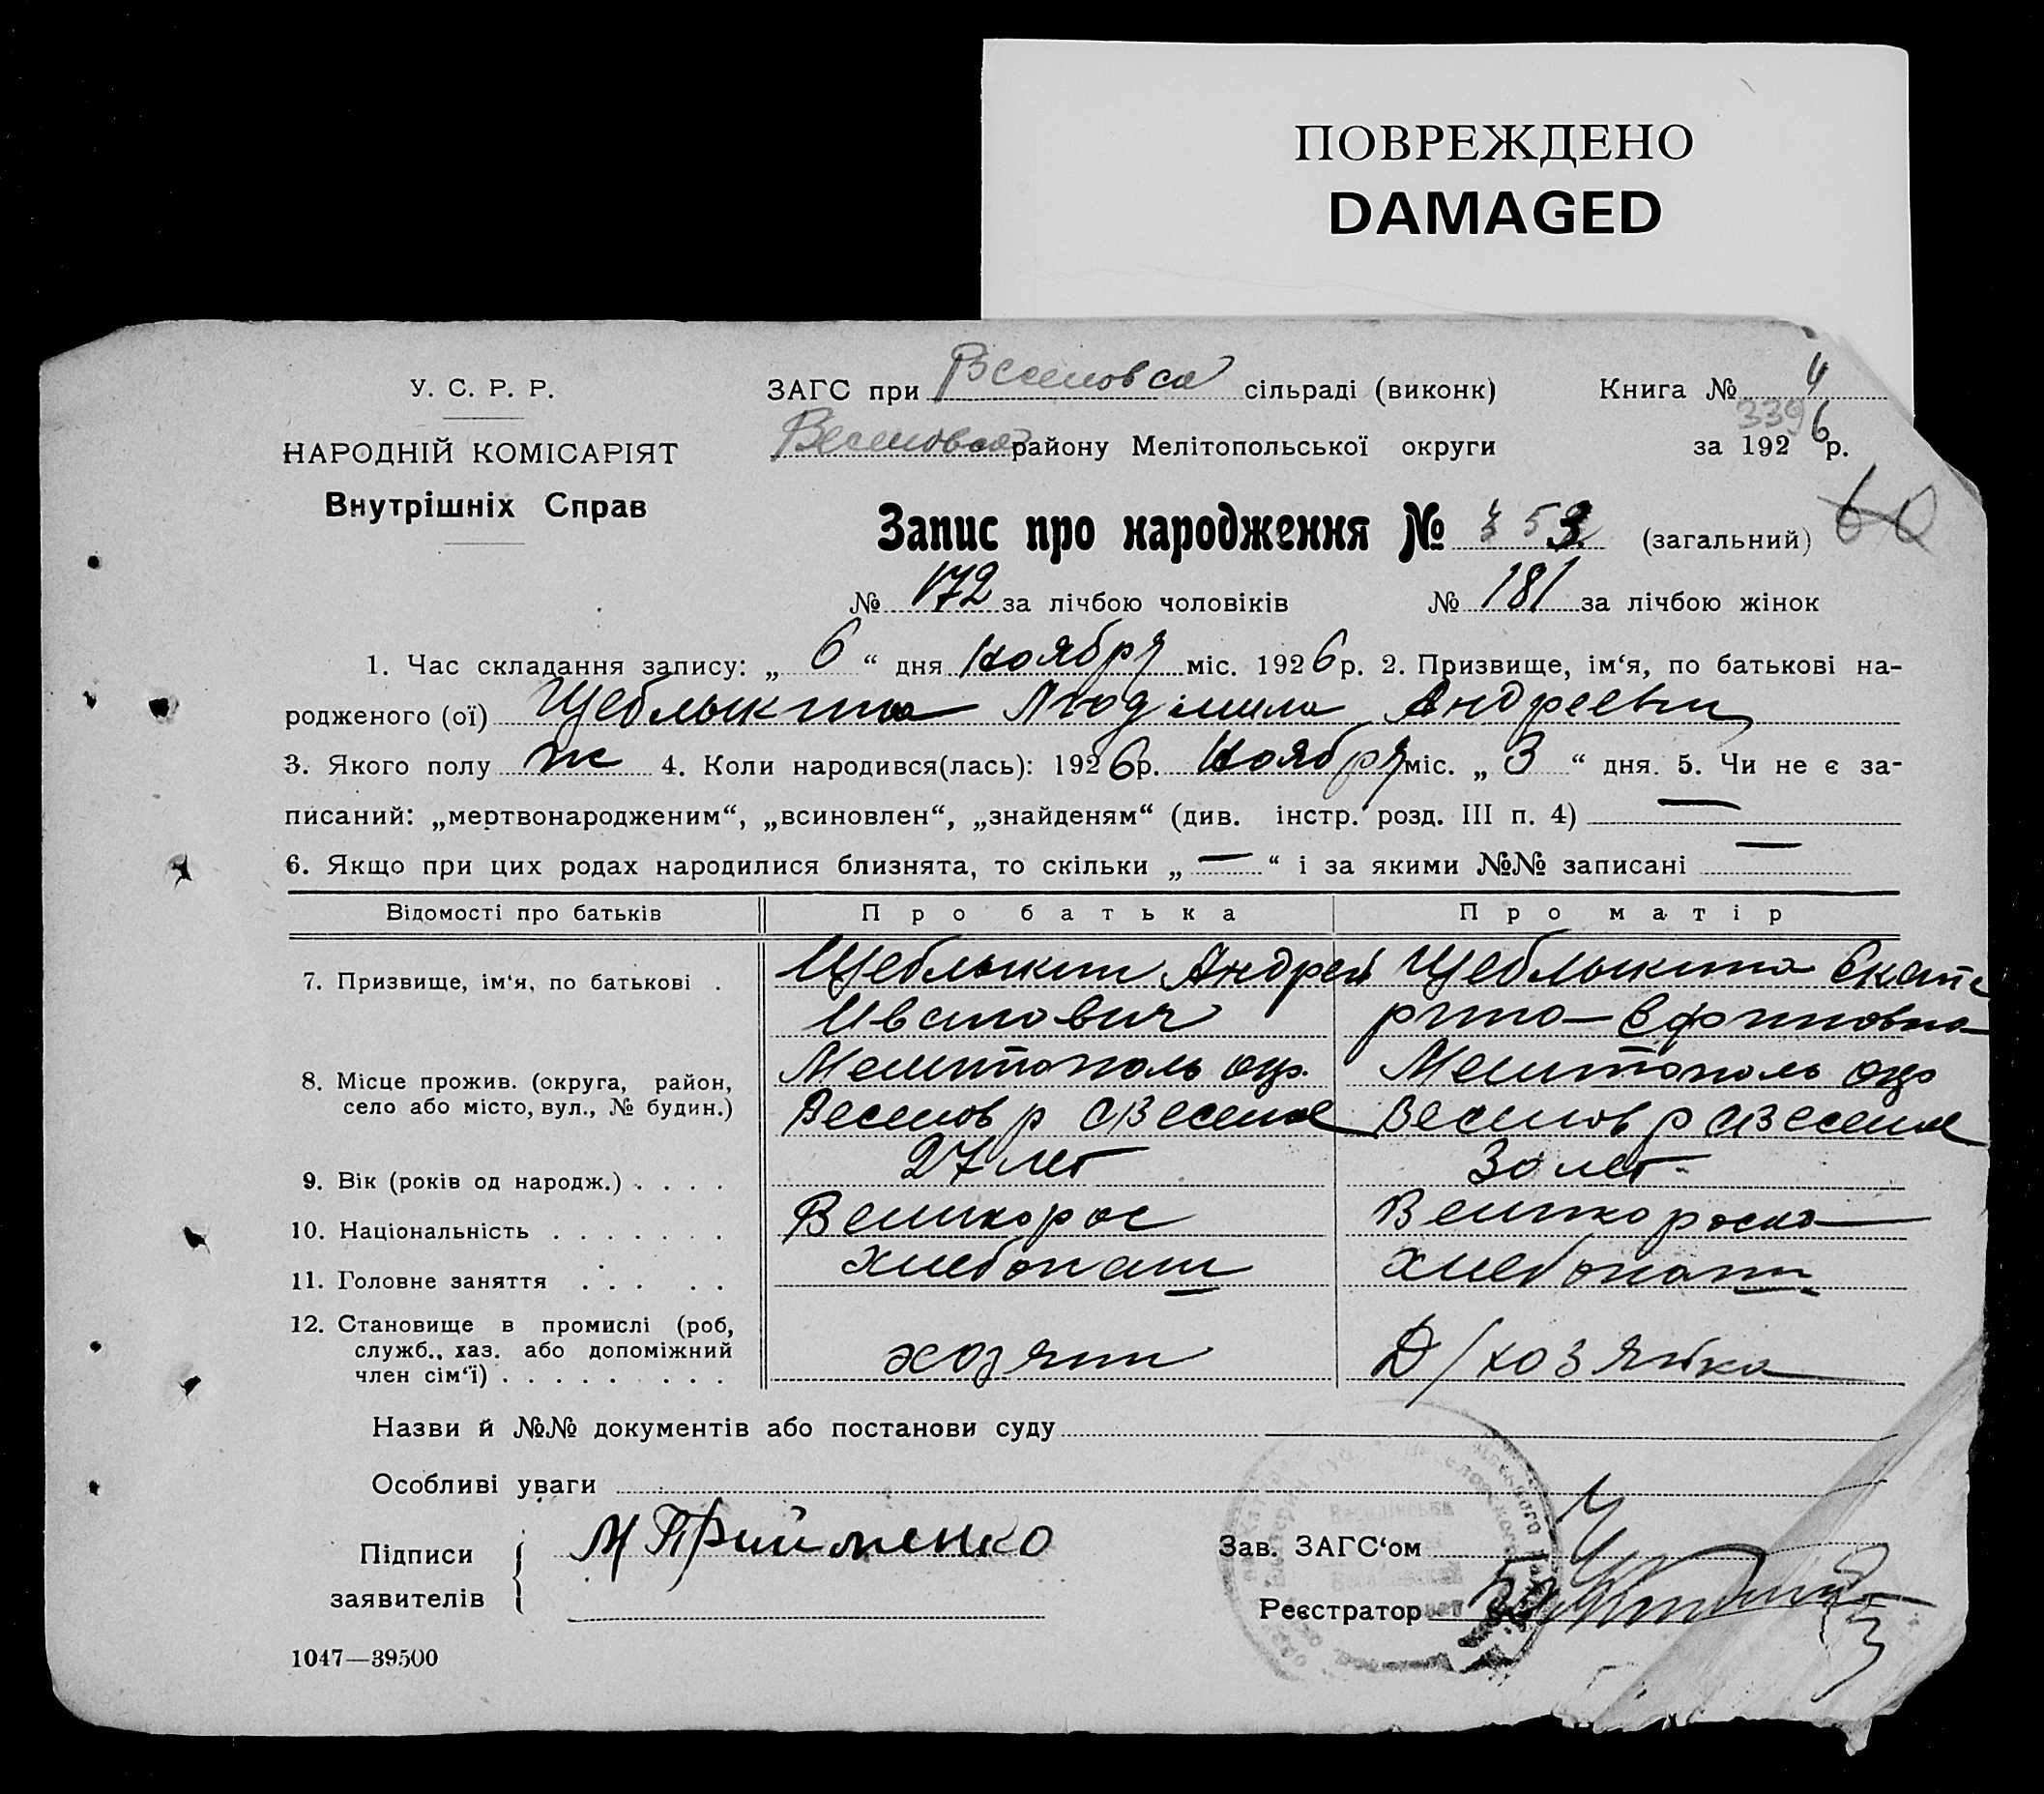 ПОВРЕЖДЕНО
DAMAGED
У. С. Р. Р.
НАРОДНІЙ КОМІСАРІЯТ
Внутрішніх Справ
ЗАГС при Веселовса сільраді (виконк) Книга № 4
339
Веселовса району Мелітопольської округи за 1926 р.
Запис про народження № 353 (загальний) 60
№ 172 за лічбою чоловіків № 181 за лічбою жінок
1. Час складання запису: „ 6 “ дня Ноября міс. 1926 р. 2. Призвище, ім‘я, по батькові на-
родженого (ої) Щеблыкина Людмила Андреевн
3. Якого полу ж 4. Коли народився(лась): 1926 р. Ноября міс. „ 3 “ дня. 5. Чи не є за-
писаний: „мертвонародженим“, „всиновлен“, „знайденям“ (див. інстр. розд. III п. 4) —
6. Якщо при цих родах народилися близнята, то скільки „ — “ і за якими №№ записані —
Відомості про батьків Про батька Про матір
7. Призвище, ім‘я, по батькові . Щеблыкин Андрей Щеблыкина Екате
Иванович рина Ефимовна
8. Місце прожив. (округа, район, Мелитополь окр. Мелитополь окр
село або місто, вул., № будин.) Веселов р с Веселое Веселов р с Веселое
9. Вік (років од народж.) . . . . 27 лет 30 лет
10. Національність . . . . . . . Великорос Великороска
11. Головне заняття . . . . . хлебопаш хлебопаш
12. Становище в промислі (роб,
служб., хаз. або допоміжний хозяин Д/хозяйка
член сім‘ї) . . . . . . . . .
Назви й №№ документів або постанови суду
Особливі уваги
Підписи М Прийменко Зав. ЗАГС‘ом
заявителів Реєстратор
1047—39500